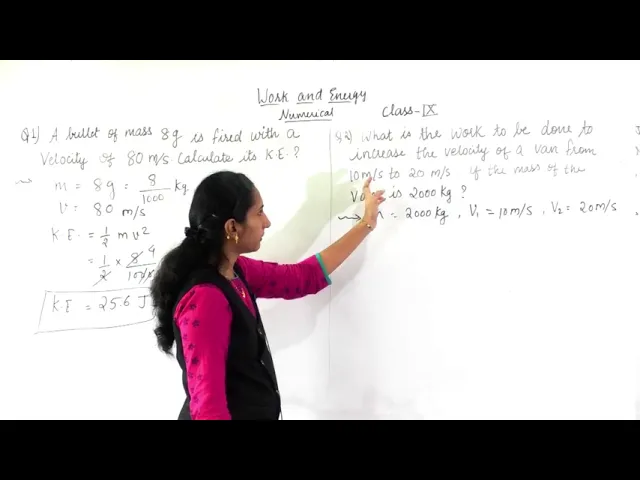 Work and Energy
Numerical
Class-IX
Q1) A bullet of mass 8g is fired with a
Velocity of 80 m/s. Calculate its K.E.?
m = 8g = 8/1000 kg
v = 80 m/s
K.E. = 1/2 m v²
= 1/2 × 8 4
K.E = 25.6 J
Q2) What is the work to be done to
increase the velocity of a van from
10 m/s to 20 m/s if the mass of the
is 2000 kg ?
= 2000 kg , V₁ = 10 m/s , V₂ = 20 m/s